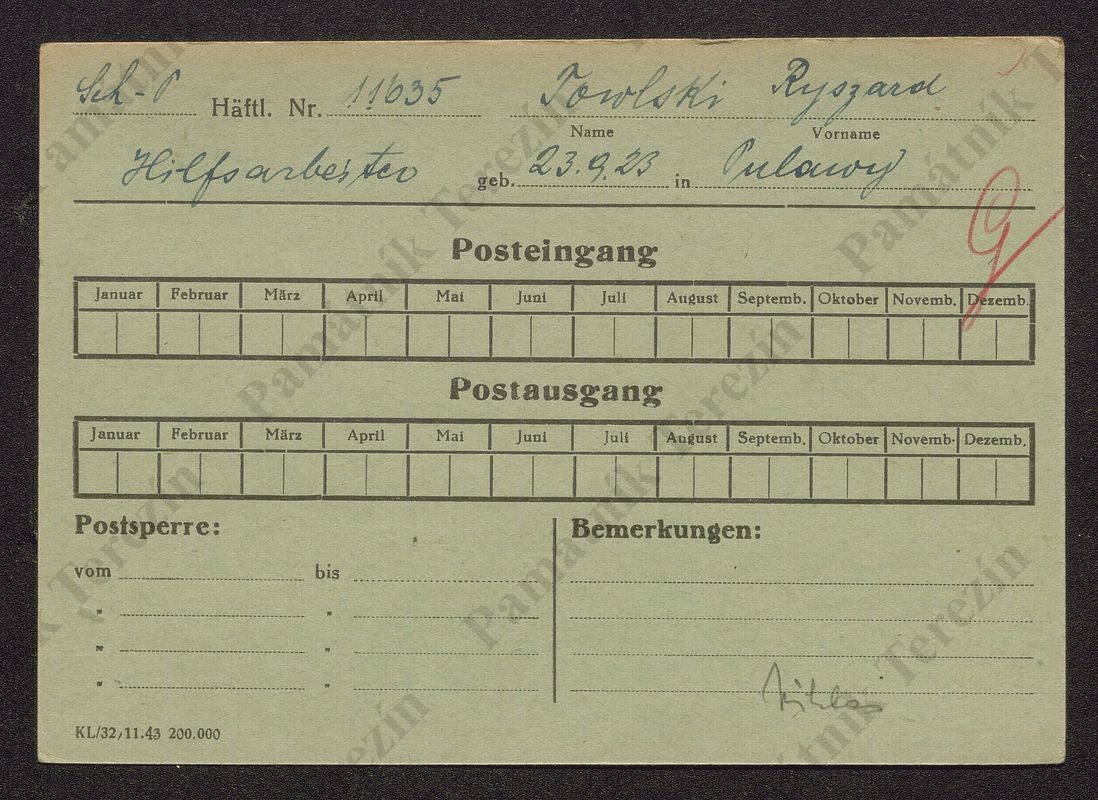 Sch-P Häftl. Nr. 11635 Towlski Ryszard
Name Vorname
Hilfsarbeiter geb. 23.9.23 in Pulawy
Posteingang
Januar Februar März April Mai Juni Juli August Septemb. Oktober Novemb. Dezemb.
Postausgang
Januar Februar März April Mai Juni Juli August Septemb. Oktober Novemb. Dezemb.
Postsperre: Bemerkungen:
vom bis
" "
" "
" "
KL/32,11.43 200.000
Památník Terezín